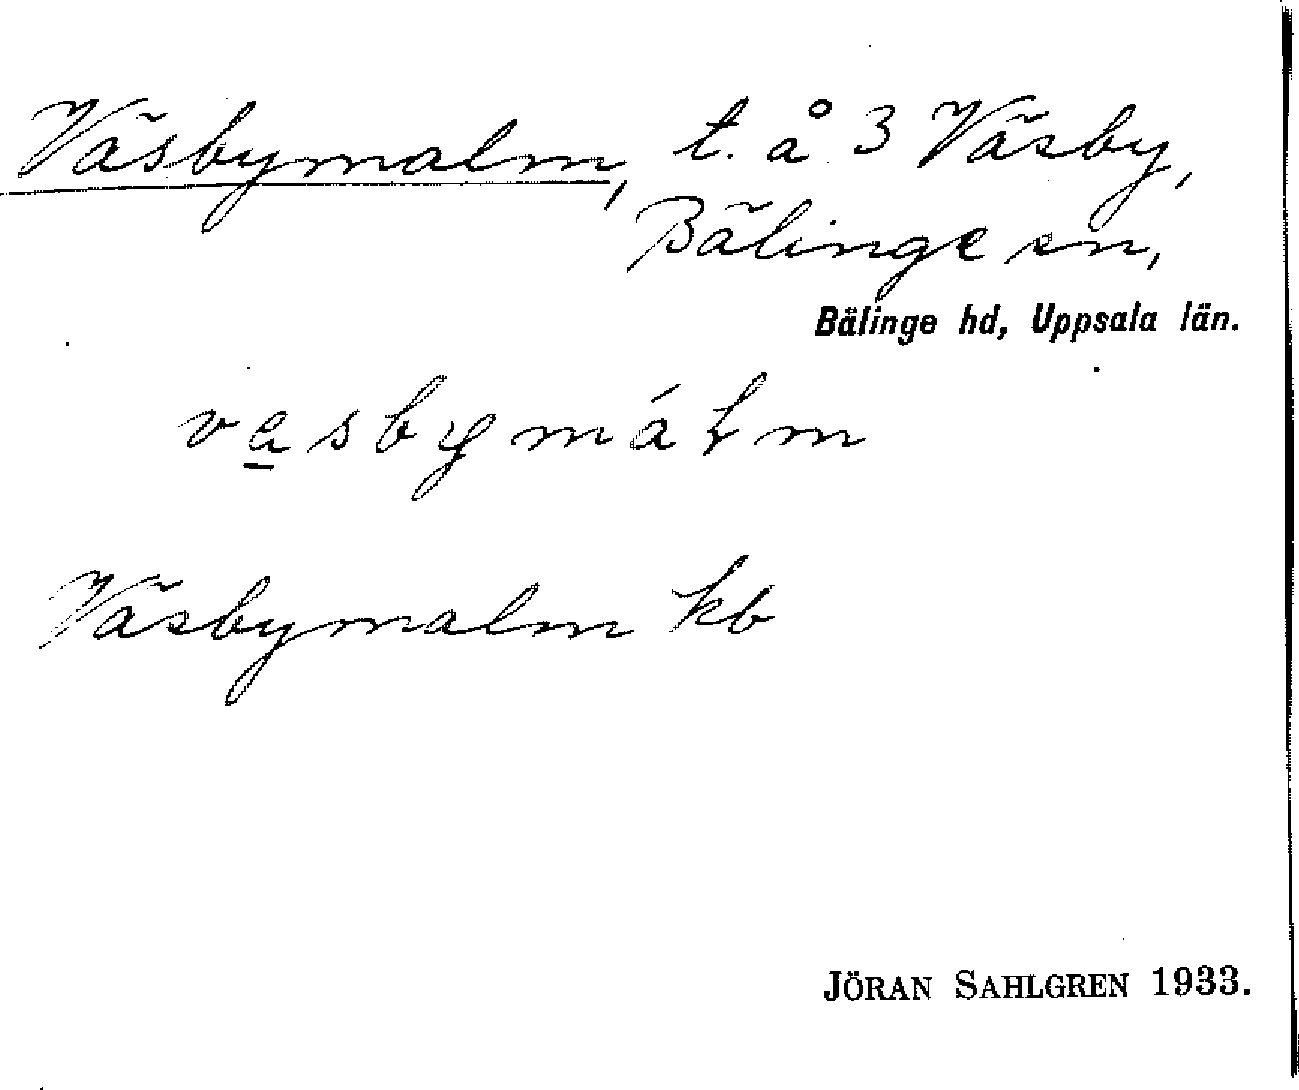 Väsbymalm, t. å 3 Väsby,
Bälinge sn,
Bälinge hd, Uppsala län.
vasbymáɫm
Väsbymalm kb
JÖRAN SAHLGREN 1933.